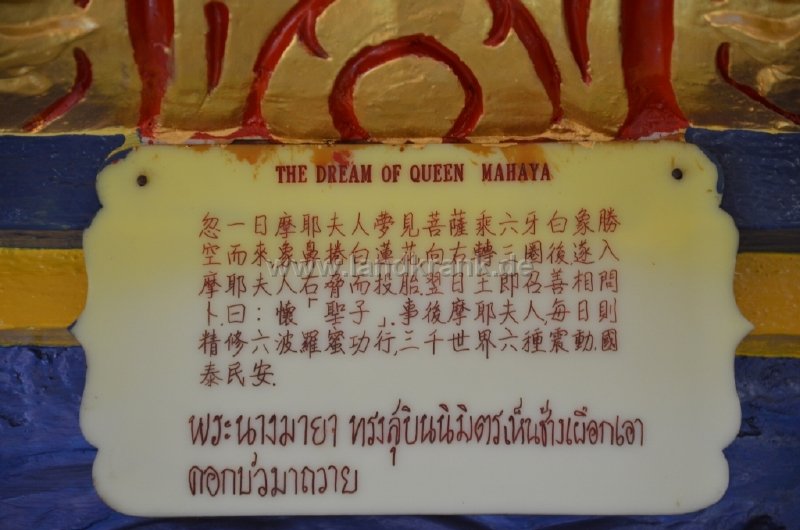 THE DREAM OF QUEEN MAHAYA
忽一日摩耶夫人夢見菩薩乘六牙白象勝
空而來象鼻捲白蓮花向右轉三圈後遂入
www.landkrank.de
摩耶夫人右脅而投胎翌日王即召善相問
卜,曰:懷「聖子」.事後摩耶夫人,每日則
精修六波羅蜜功行,三千世界六種震動.國
泰民安.
พระนางมายา ทรงสุบินนิมิตรเห็นช้างเผือกเอา
ดอกบัวมาถวาย